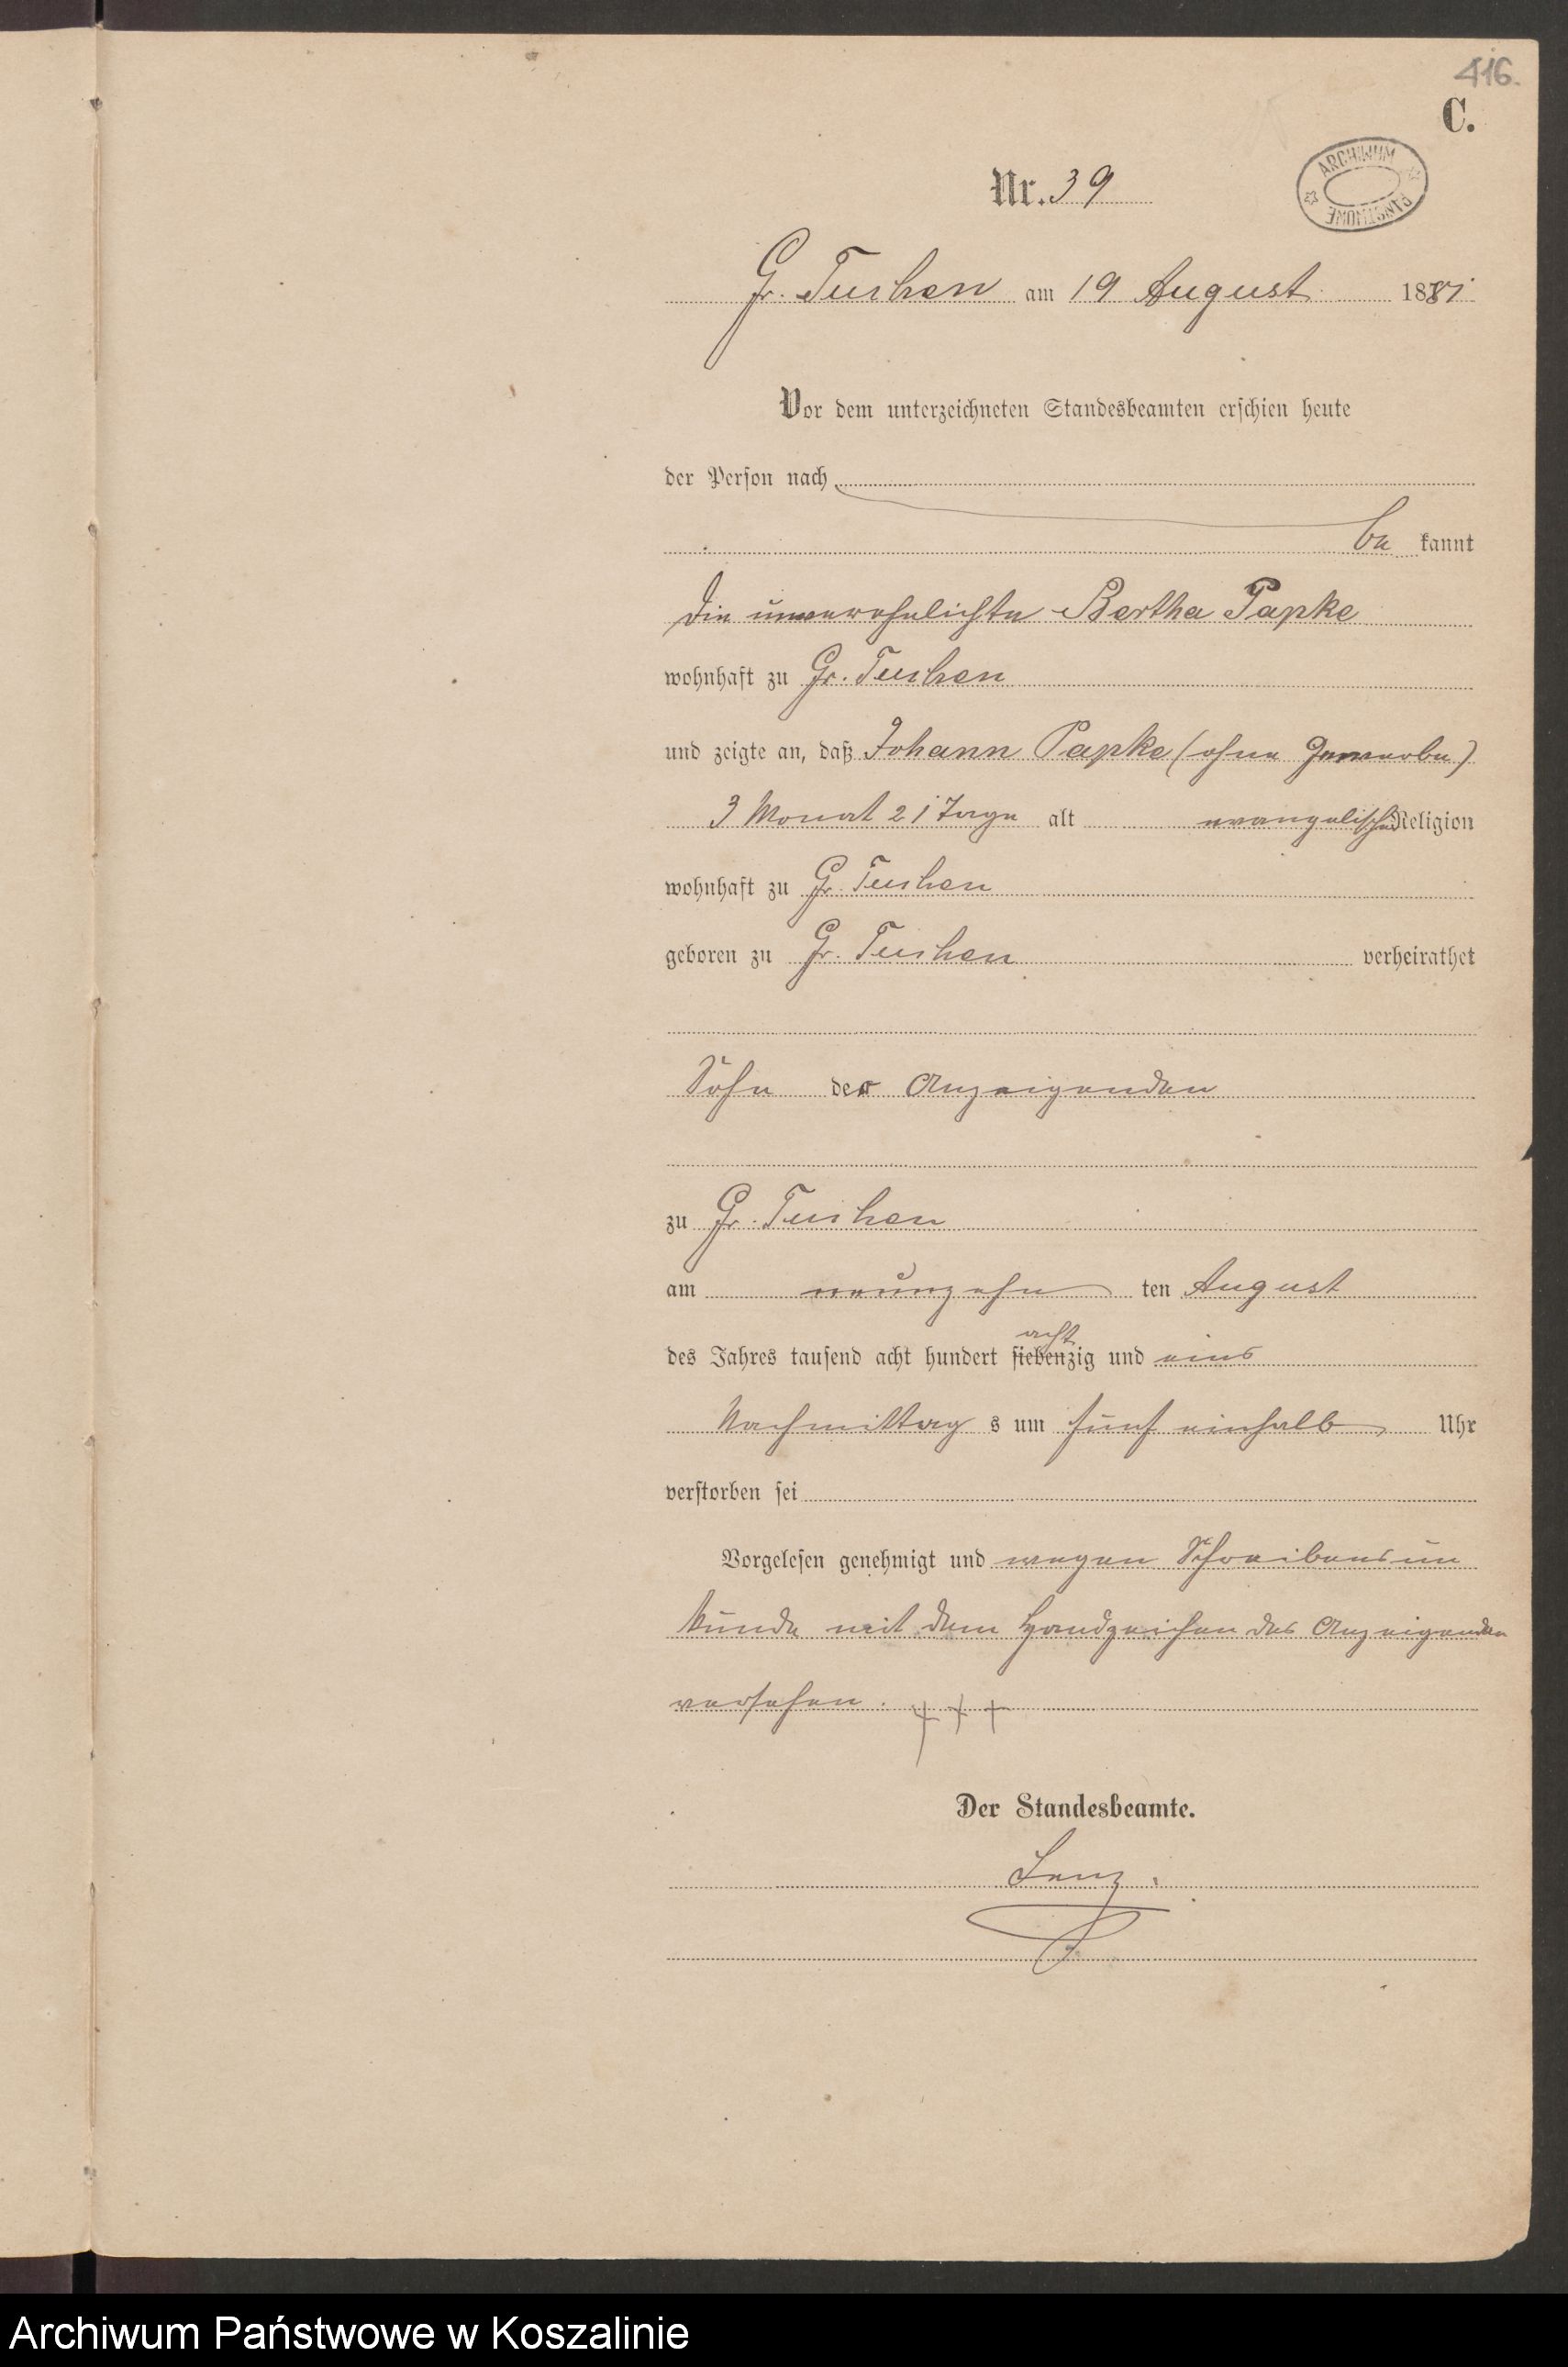 416.
C.
ARCHIWUM PAŃSTWOWE
Nr. 39
Gr. Tuchen am 19 August 1881
Vor dem unterzeichneten Standesbeamten erschien heute
der Person nach
be kannt
die unverehelichte Bertha Papke
wohnhaft zu Gr. Tuchen
und zeigte an, daß Johann Papke (ohne Gewerbe)
3 Monat 21 Tage alt evangelischer Religion
wohnhaft zu Gr. Tuchen
geboren zu Gr. Tuchen verheirathet
Sohn der Anzeigenden
zu Gr. Tuchen
am neunzehn ten August
acht
des Jahres tausend acht hundert siebenzig und eins
Nachmittag s um fünf einhalb Uhr
verstorben sei
Vorgelesen genehmigt und wegen Schreibensun
kunde mit dem Handzeichen des Anzeigenden
versehen. +++
Der Standesbeamte.
Lenz.
Archiwum Państwowe w Koszalinie